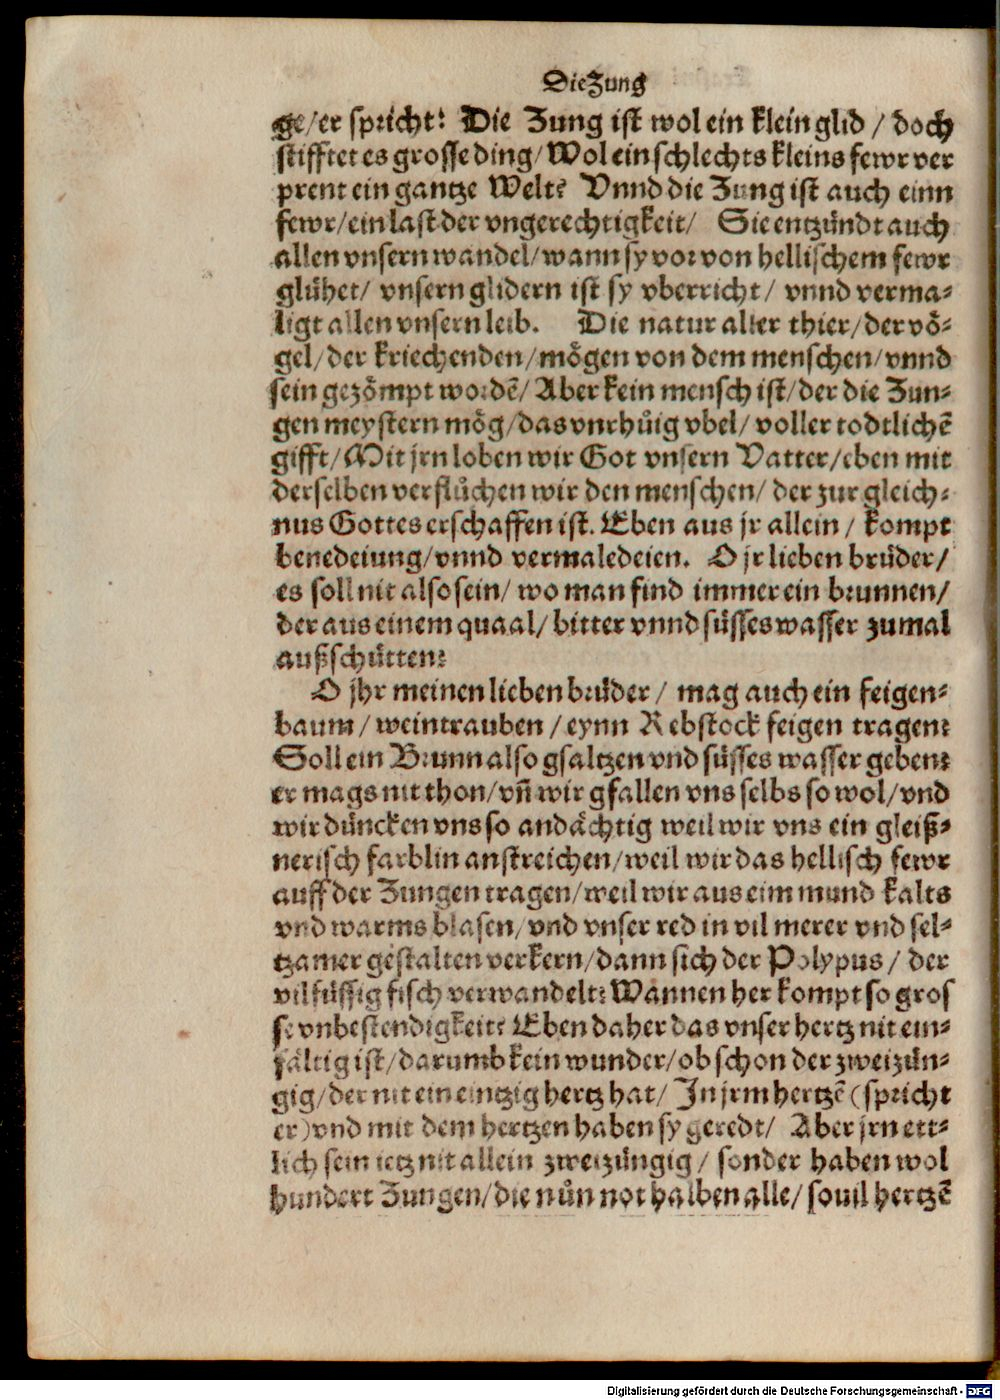 Die Zung
ge/er spricht: Die Zung ist wol ein klein glid / doch
stifftet es grosse ding/Wol ein schlechts kleins fewr ver
prent ein gantze Welt? Vnnd die Zung ist auch einn
fewr/ein last der vngerechtigkeit/ Sie entzündt auch
allen vnsern wandel/wann sy vor von hellischem fewr
glühet/ vnsern glidern ist sy vberricht/ vnnd verma-
ligt allen vnsern leib. Die natur aller thier/der vö-
gel/der kriechenden/mögen von dem menschen/vnnd
sein gezömpt wordē/Aber kein mensch ist/der die Zun-
gen meystern mög/das vnrhůig vbel/ voller todtlichē
gifft/Mit jrn loben wir Got vnsern Vatter/eben mit
derselben verflůchen wir den menschen/ der zur gleich-
nus Gottes erschaffen ist. Eben aus jr allein / kompt
benedeiung/vnnd vermaledeien. O jr lieben brüder/
es soll nit also sein/ wo man find immer ein brunnen/
der aus einem quaal/ bitter vnnd süsses wasser zumal
außschütten?
O jhr meinen lieben brüder / mag auch ein feigen-
baum / weintrauben / eynn Rebstock feigen tragen?
Soll ein Brunn also gsaltzen vnd süsses wasser geben?
er mags nit thon/vñ wir gfallen vns selbs so wol/vnd
wir düncken vns so andächtig weil wir vns ein gleiß-
nerisch farblin anstreichen/weil wir das hellisch fewr
auff der Zungen tragen/weil wir aus eim mund kalts
vnd warms blasen/vnd vnser red in vil merer vnd sel-
tzamer gestalten verkern/dann sich der Polypus/ der
vilfüssig fisch verwandelt? Wannen her kompt so gros
se vnbestendigkeit? Eben daher das vnser hertz nit ein-
fältig ist/darumb kein wunder/ob schon der zweizün-
gig/der nit ein eintzig hertz hat/ In jrm hertzē (spricht
er) vnd mit dem hertzen haben sy geredt/ Aber jrn ett-
lich sein ietz nit allein zweizüngig / sonder haben wol
hundert Zungen/die nůn not halben alle/ souil hertzē
Digitalisierung gefördert durch die Deutsche Forschungsgemeinschaft - DFG